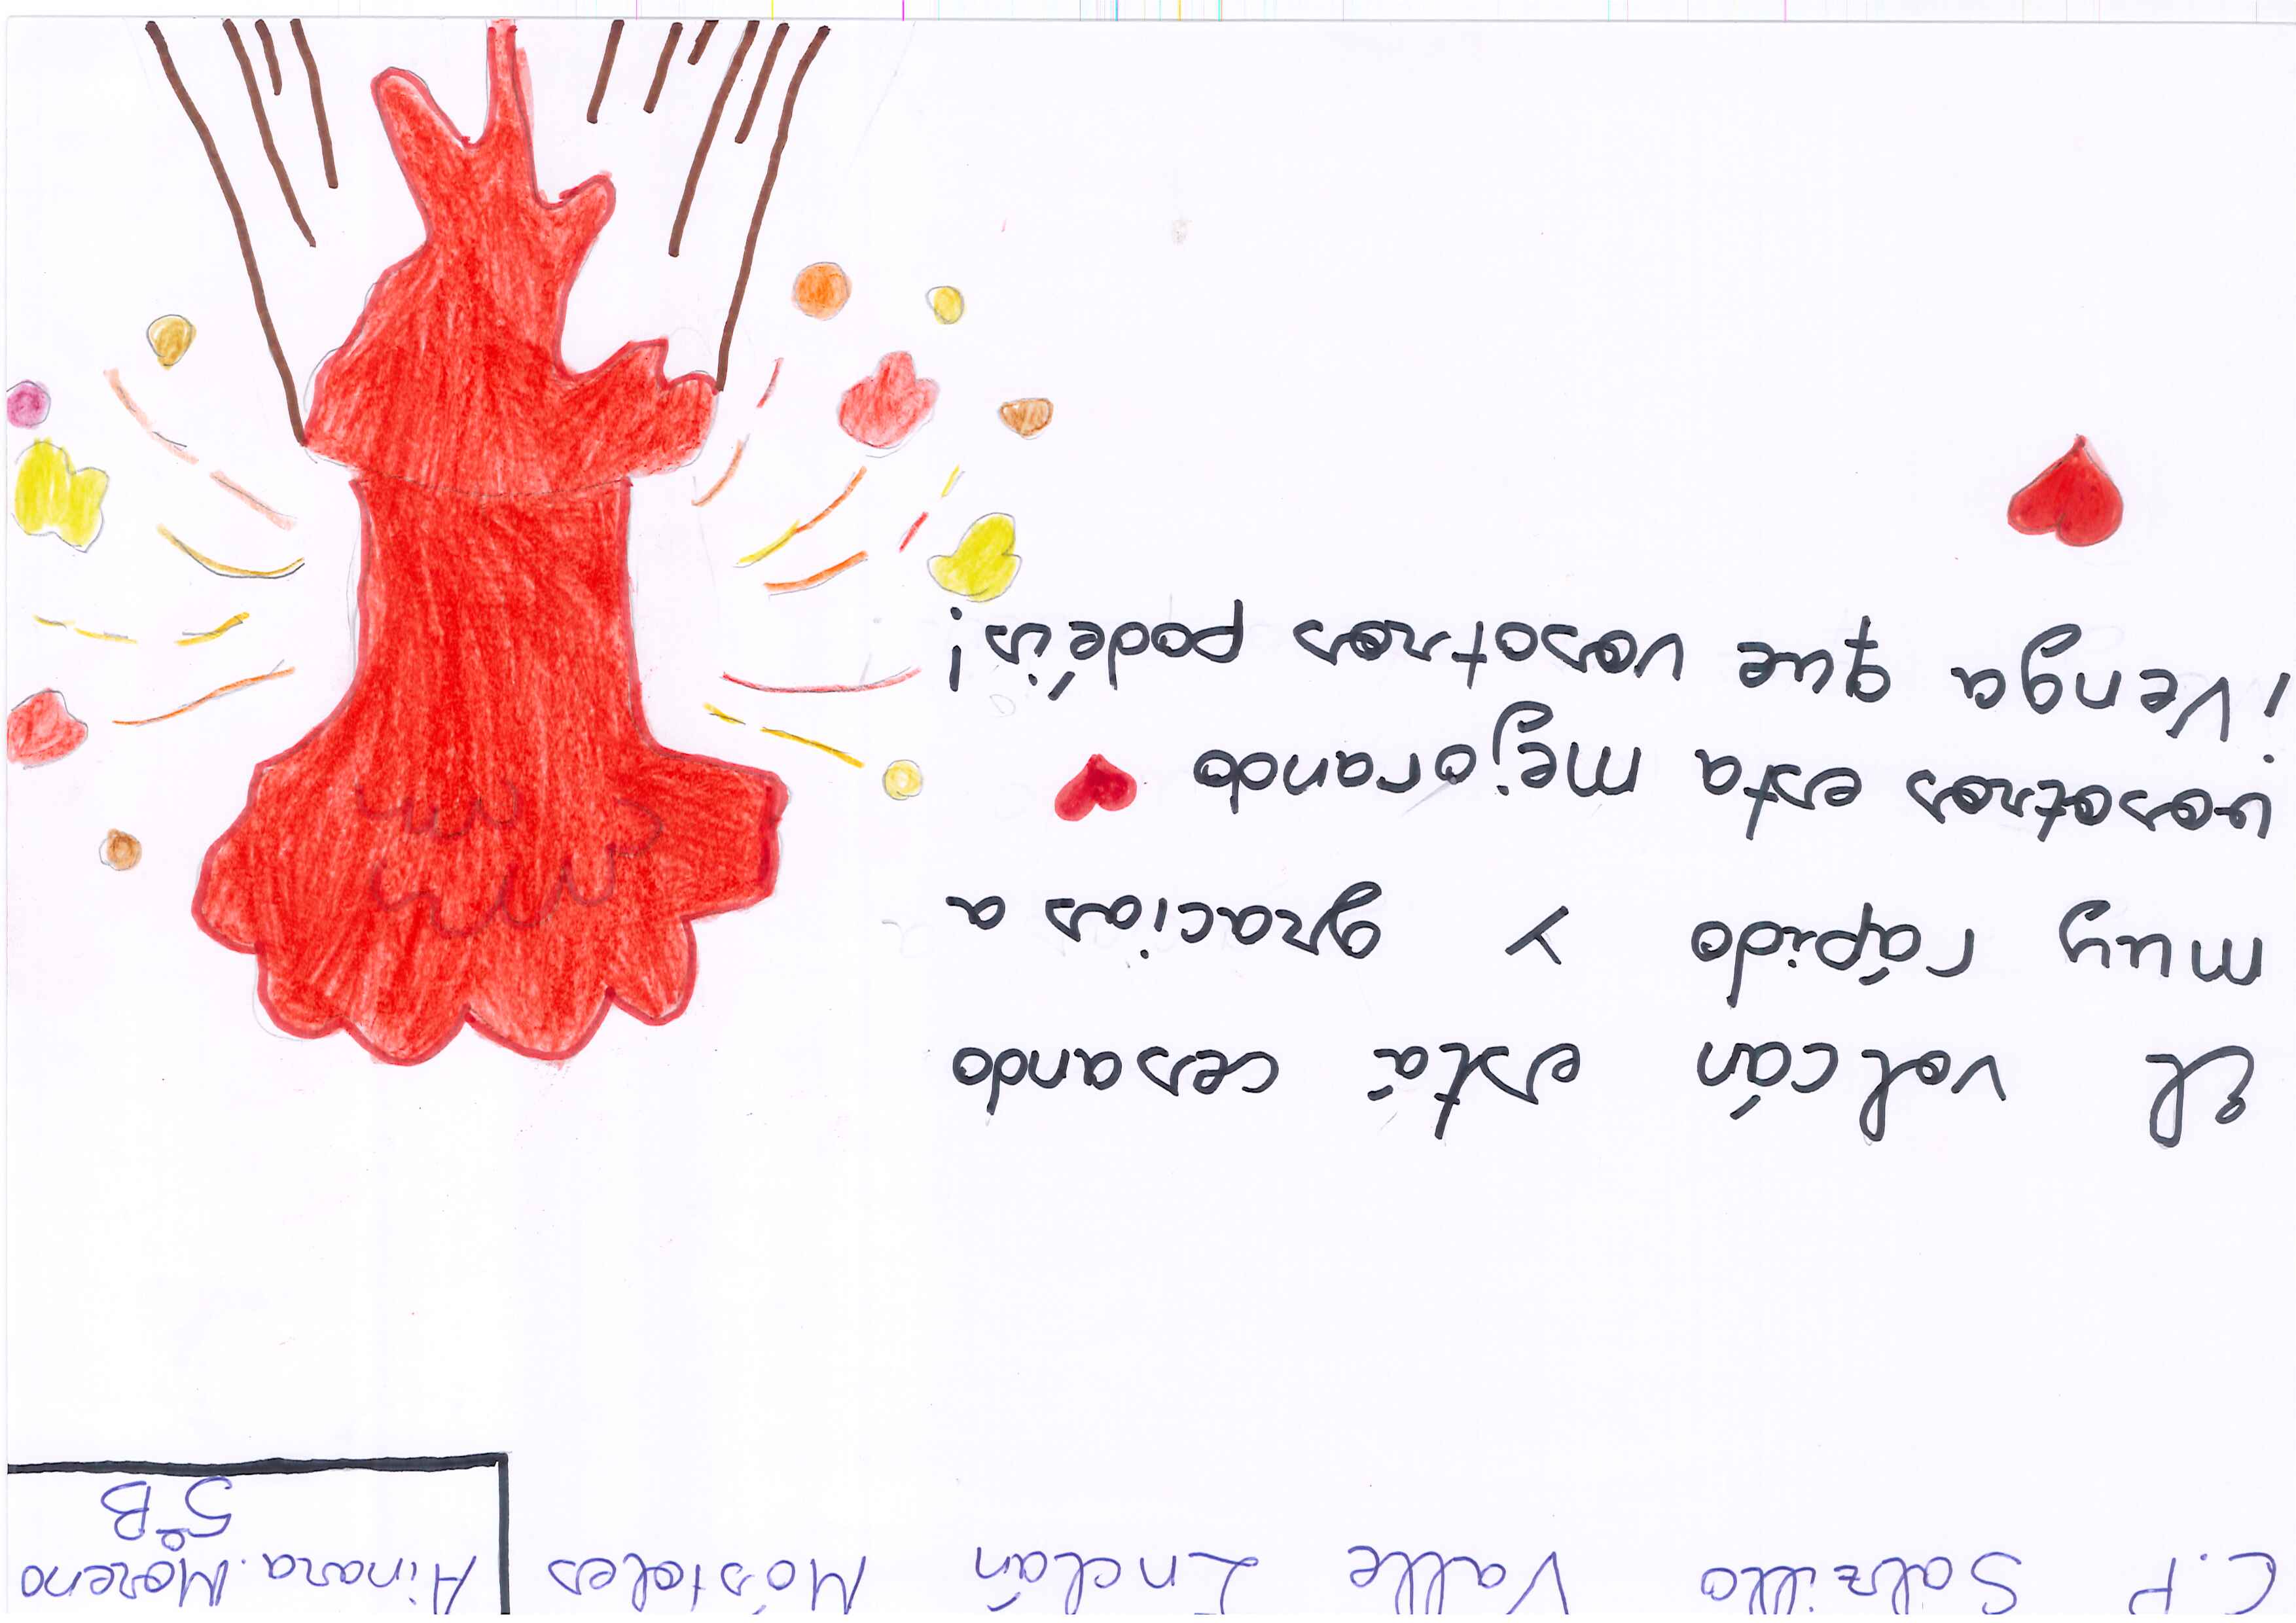 C.P Salzillo Valle Inclán Móstoles Ainara. Moreno
5ºB
El volcán está cesando
muy rápido y gracias a
vosotros esta mejorando
¡Venga que vosotros podéis!